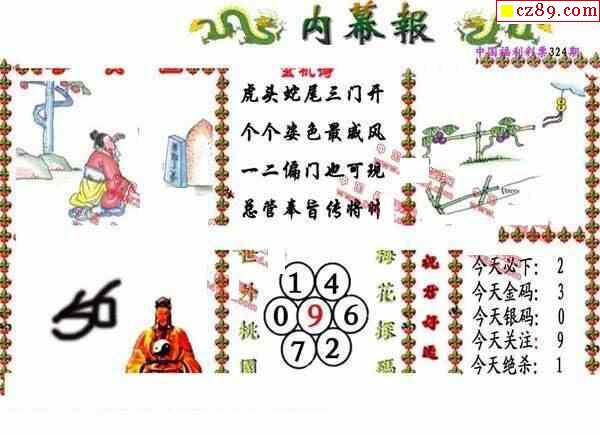 cz89.com
内幕報
中国福利彩票324期
玄机诗
虎头蛇尾三门开
个个姿色最威风
一二偏门也可现
总管奉旨传将帅
8
世外桃園
1 4
0 9 6
7 2
梅花探碼
祝君好运
今天必下: 2
今天金码: 3
今天银码: 0
今天关注: 9
今天绝杀: 1